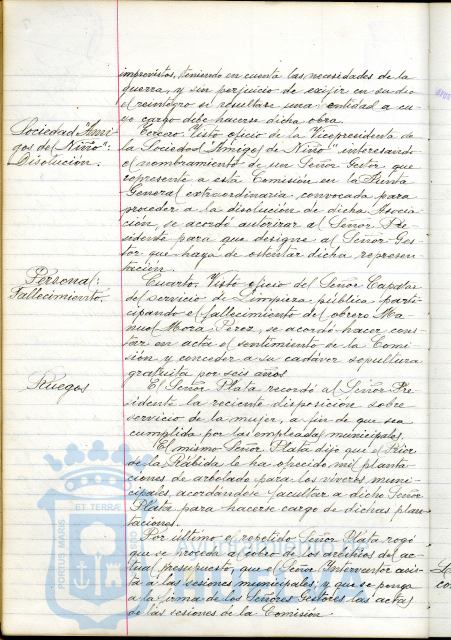 imprevistos, teniendo en cuenta las necesidades de la
guerra, y sin perjuicio de exijir en su dia
el reintegro si resultase una entidad a cu-
yo cargo debe hacerse dicha obra.
Sociedad "Ami-
gos del Niño":
Disolución.
Tercero. Visto oficio de la Vicepresidenta de
la Sociedad "Amigos de Niño" interesando
el nombramiento de un Señor Gestor que
represente a esta Comisión en la Junta
General extraordinaria, convocada para
proceder a la disolución de dicha Asocia-
ción, se acordó autorizar al Señor Pre-
sidente para que designe al Señor Ges-
tor que haya de ostentar dicha represen-
tación.
Personal:
Fallecimiento.
Cuarto. Visto oficio del Señor Capataz
del servicio de Limpieza pública parti-
cipando el fallecimiento del obrero Ma-
nuel Mora Perez, se acordó hacer cons-
tar en acta el sentimiento de la Comi-
sión y conceder a su cadáver sepultura
gratuita por seis años
Ruegos
El Señor Plata recordó al Señor Pre-
sidente la reciente disposición sobre
servicio de la mujer, a fin de que sea
cumplida por las empleadas municipales.
El mismo Señor Plata dijo que el Prior
de la Rábida le ha ofrecido mil planta-
ciones de arbolado para los viveros muni-
cipales, acordandose facultar a dicho Señor
Plata para hacerse cargo de dichas plan-
taciones.
Por último el repetido Señor Plata rogó
que se proceda al cobro de los arbitrios del ac-
tual presupuesto, que el Señor Interventor asis-
ta a las sesiones municipales; y que se ponga
a la firma de los Señores Gestores las actas
de las sesiones de la Comisión.
PORTUS MARIS
ET TERRÆ
Ayuntamiento